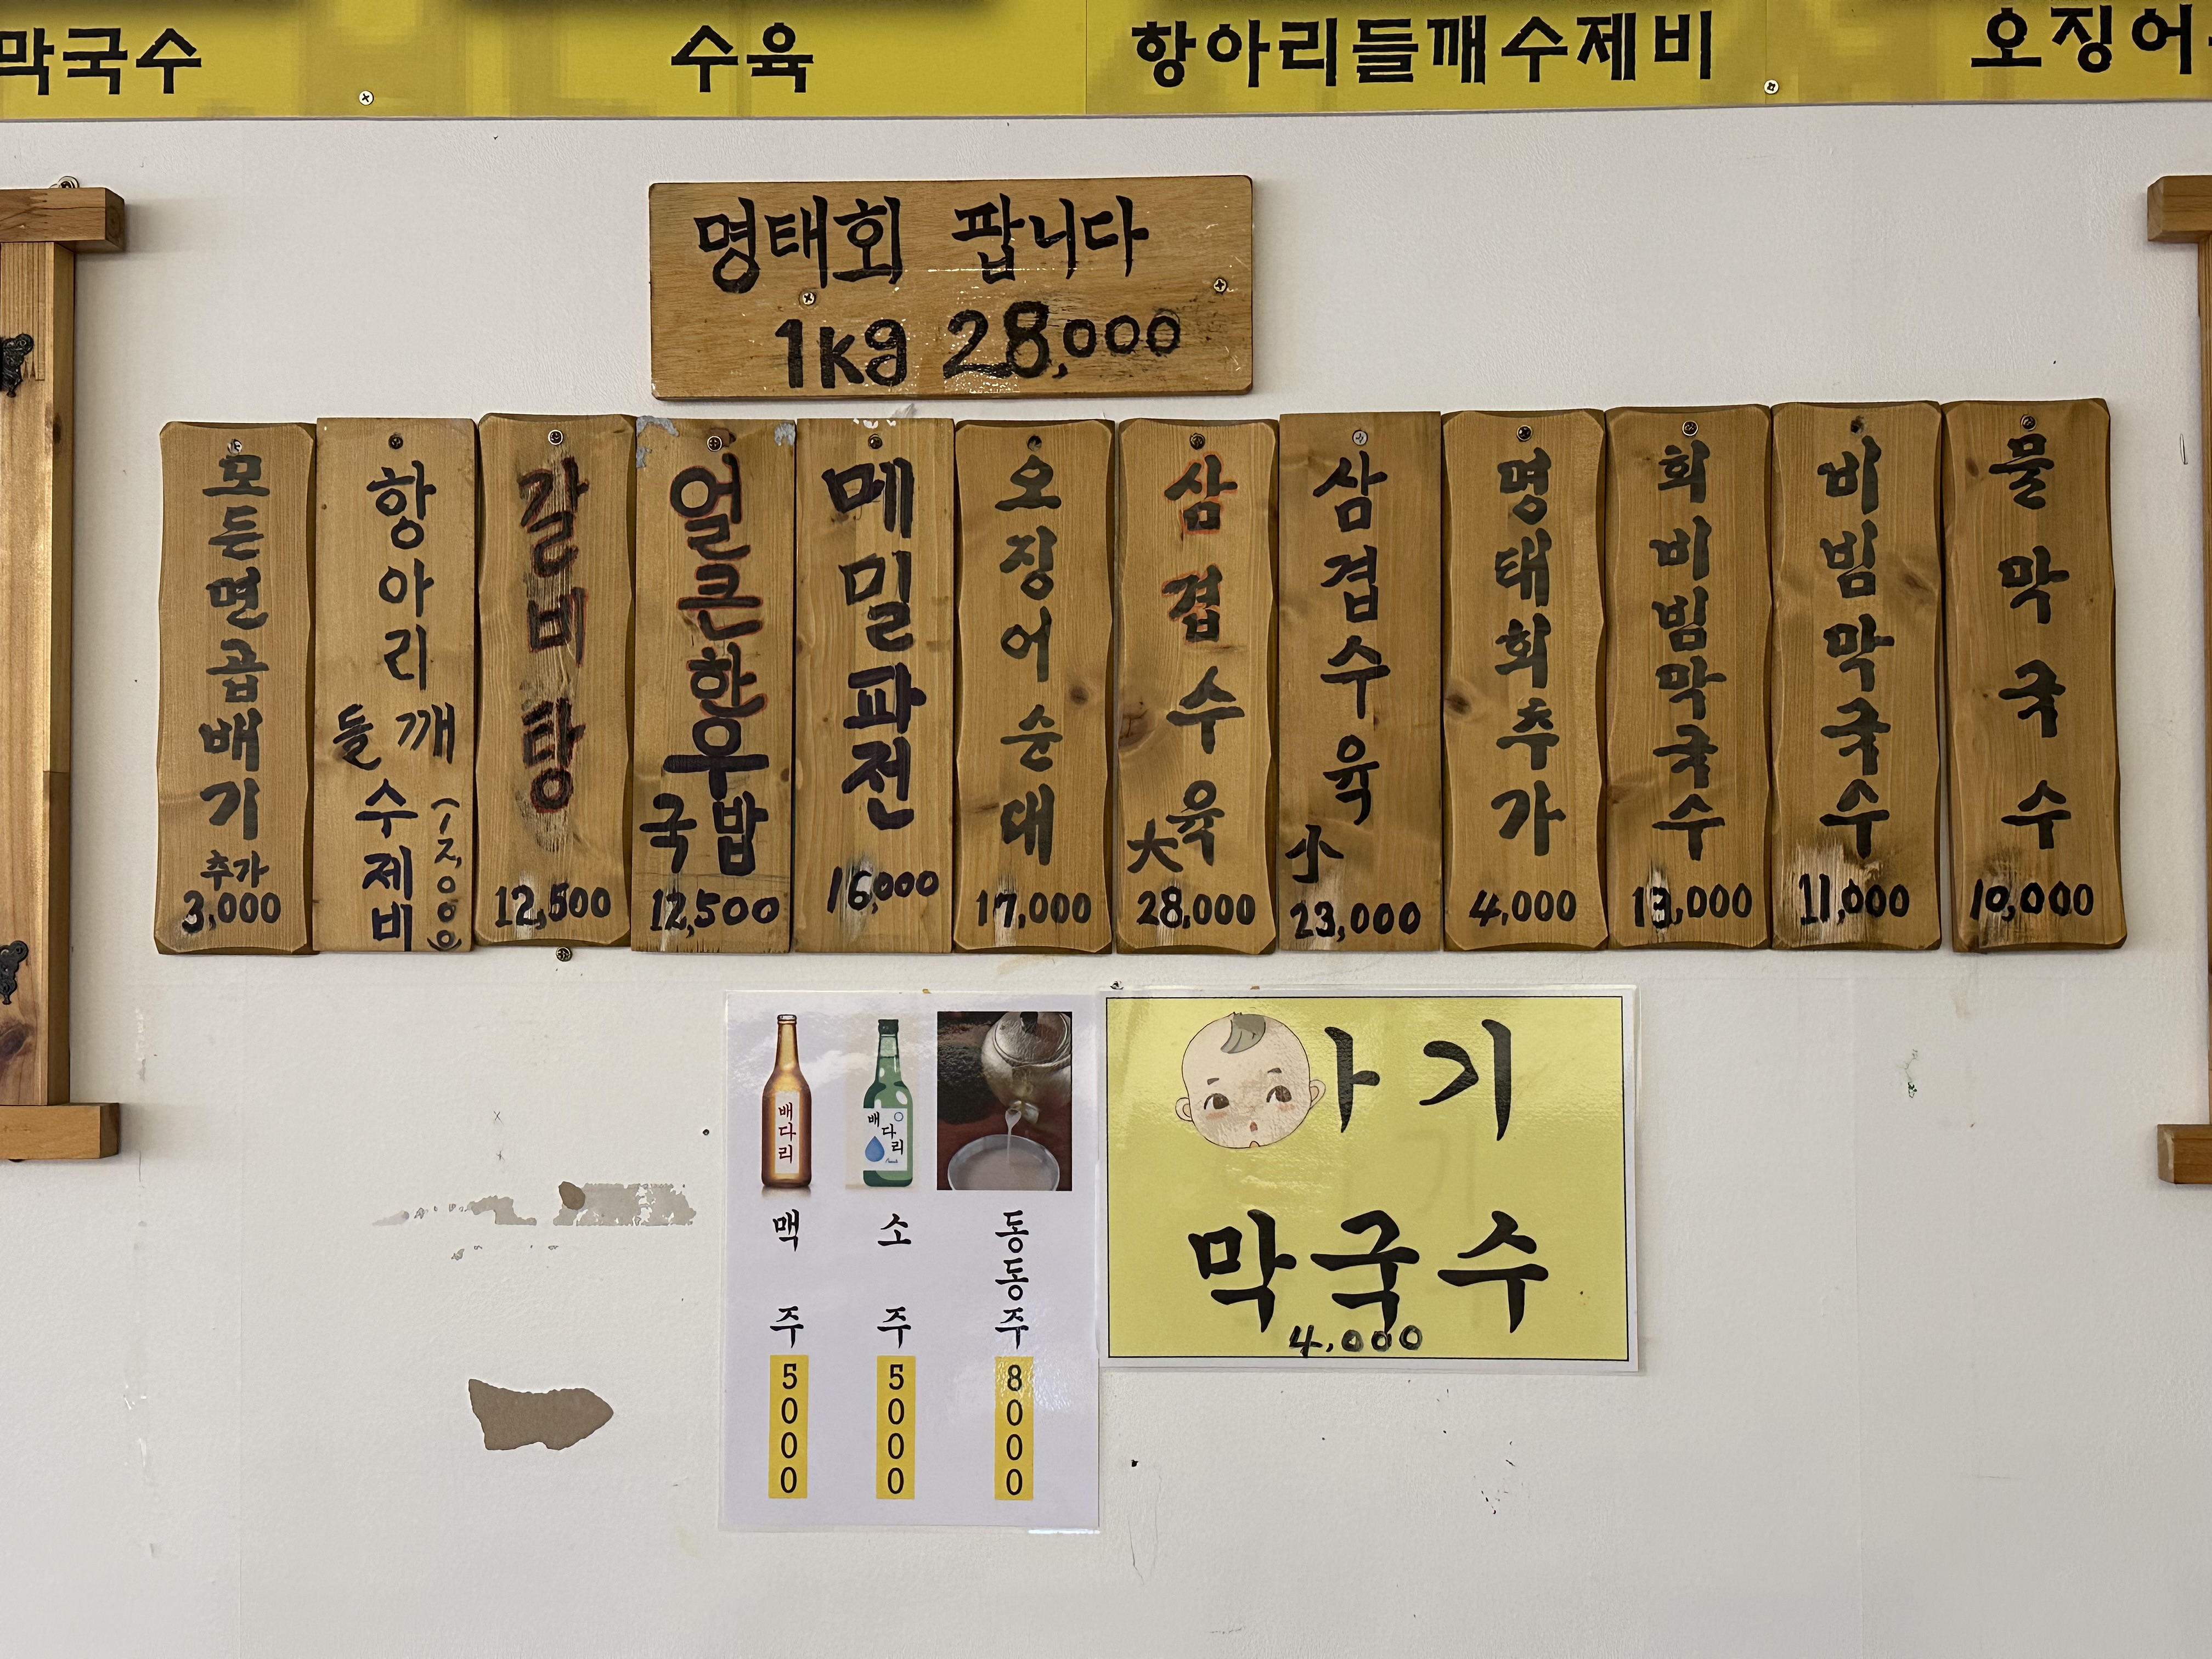 막국수
수육
항아리들깨수제비
오징어
명태회 팝니다
1kg 28,000
모든면곱배기 추가
3,000
항아리 들깨 수제비
갈비탕
12,500
얼큰한우국밥
12,500
메밀파전
16,000
오징어순대
17,000
삼겹수육 大
28,000
삼겹수육 小
23,000
명태회추가
4,000
회비빔막국수
13,000
비빔막국수
11,000
물막국수
10,000
배다리
배다리
맥주
5000
소주
5000
동동주
8000
아기
막국수
4,000